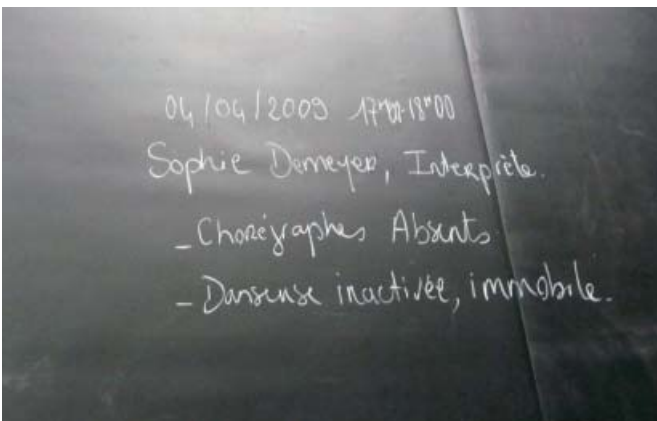 04/04/2009 17h00-18h00
Sophie Demeyer, Interprète.
- Chorégraphes Absents
- Danseuse inactivée, immobile.